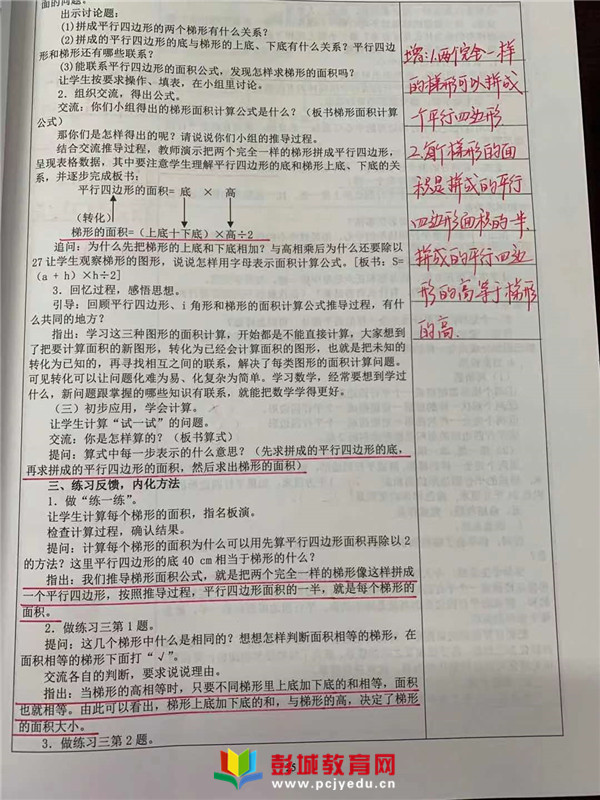 面的问题。
出示讨论题：
(1)拼成平行四边形的两个梯形有什么关系？
(2)拼成的平行四边形的底与梯形的上底、下底有什么关系？平行四边
形和梯形还有哪些联系？
(3)能联系平行四边形的面积公式，发现怎样求梯形的面积吗？
让学生按要求操作、填表，在小组里讨论。
2．组织交流，得出公式。
交流：你们小组得出的梯形面积计算公式是什么？（板书梯形面积计算
公式）
那你们是怎样得出的呢？请说说你们小组的推导过程。
结合交流推导过程，教师演示把两个完全一样的梯形拼成平行四边形，
呈现表格数据，其中要注意学生理解平行四边形的底和梯形上底、下底的关
系，并逐步完成板书：
平行四边形的面积＝ 底 × 高
（转化）
梯形的面积＝（上底十下底）×高÷2
追问：为什么先把梯形的上底和下底相加？与高相乘后为什么还要除以
27 让学生观察梯形的图形，说说怎样用字母表示面积计算公式。[板书：S=
（a + h）×h÷2]
3．回忆过程，感悟思想。
引导：回顾平行四边形、i 角形和梯形的面积计算公式推导过程，有什
么共同的地方？
指出：学习这三种图形的面积计算，开始都是不能直接计算，大家想到
了把要计算面积的新图形，转化为已经会计算面积的图形，也就是把未知的
转化为已知的，再寻找相互之间的联系，解决了每类图形的面积计算问题。
可见转化可以让问题化难为易、化复杂为简单。学习数学，经常要想到学过
什么，新问题跟掌握的哪些知识有联系，就能把数学学得更好。
（三）初步应用，学会计算。
让学生计算“试一试”的问题。
交流：你是怎样算的？（板书算式）
提问：算式中每一步表示的什么意思？（先求拼成的平行四边形的底，
再求拼成的平行四边形的面积，然后求出梯形的面积）
三、练习反馈，内化方法
1．做“练一练”。
让学生计算每个梯形的面积，指名板演。
检查计算过程，确认结果。
提问：计算每个梯形的面积为什么可以用先算平行四边形面积再除以 2
的方法？这里平行四边形的底 40 cm 相当于梯形的什么？
指出：我们推导梯形面积公式，就是把两个完全一样的梯形像这样拼成
一个平行四边形，按照推导过程，平行四边形面积的一半，就是每个梯形的
面积。
2．做练习三第 1 题。
提问：这几个梯形中什么是相同的？想想怎样判断面积相等的梯形，在
面积相等的梯形下面打“√”。
交流各自的判断，要求说说理由。
指出：当梯形的高相等时，只要不同梯形里上底加下底的和相等，面积
也就相等。由此可以看出，梯形上底加下底的和，与梯形的高，决定了梯形
的面积大小。
3．做练习三第 2 题。
增：1.两个完全一样
的梯形可以拼成
一个平行四边形
2.每个梯形的面
积是拼成的平行
四边形面积的一半
拼成的平行四边
形的高等于梯形
的高.
彭城教育网
www.pcjyedu.cn